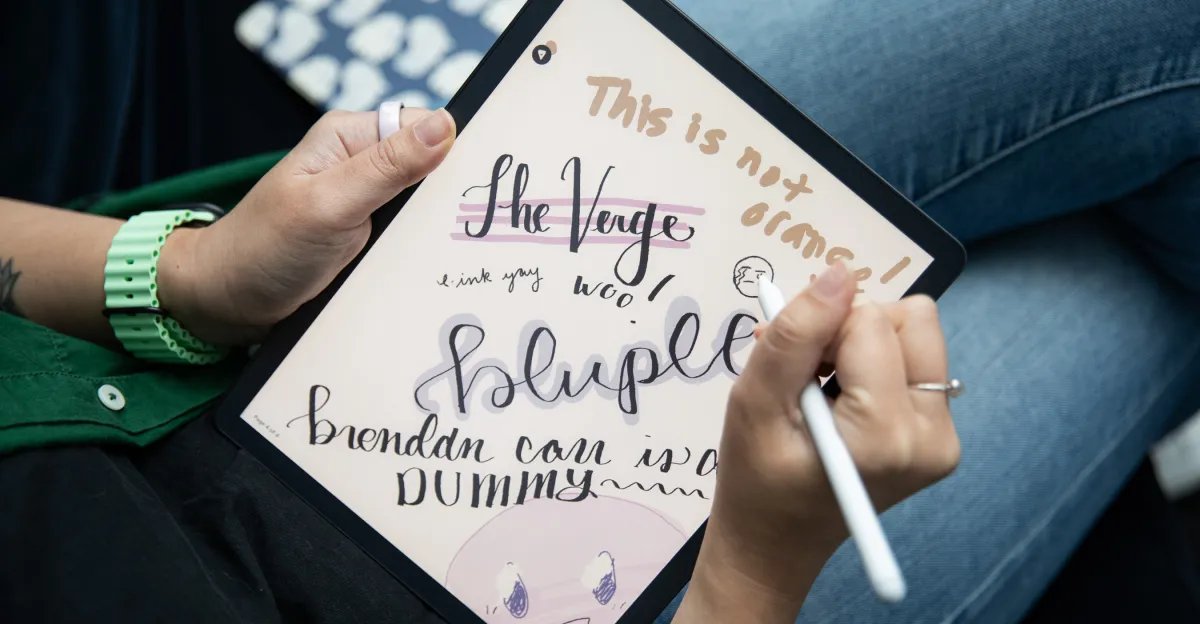 This is not
orange!
The Verge
e.ink yay
woo!
bluple
brendan carr is a
DUMMY